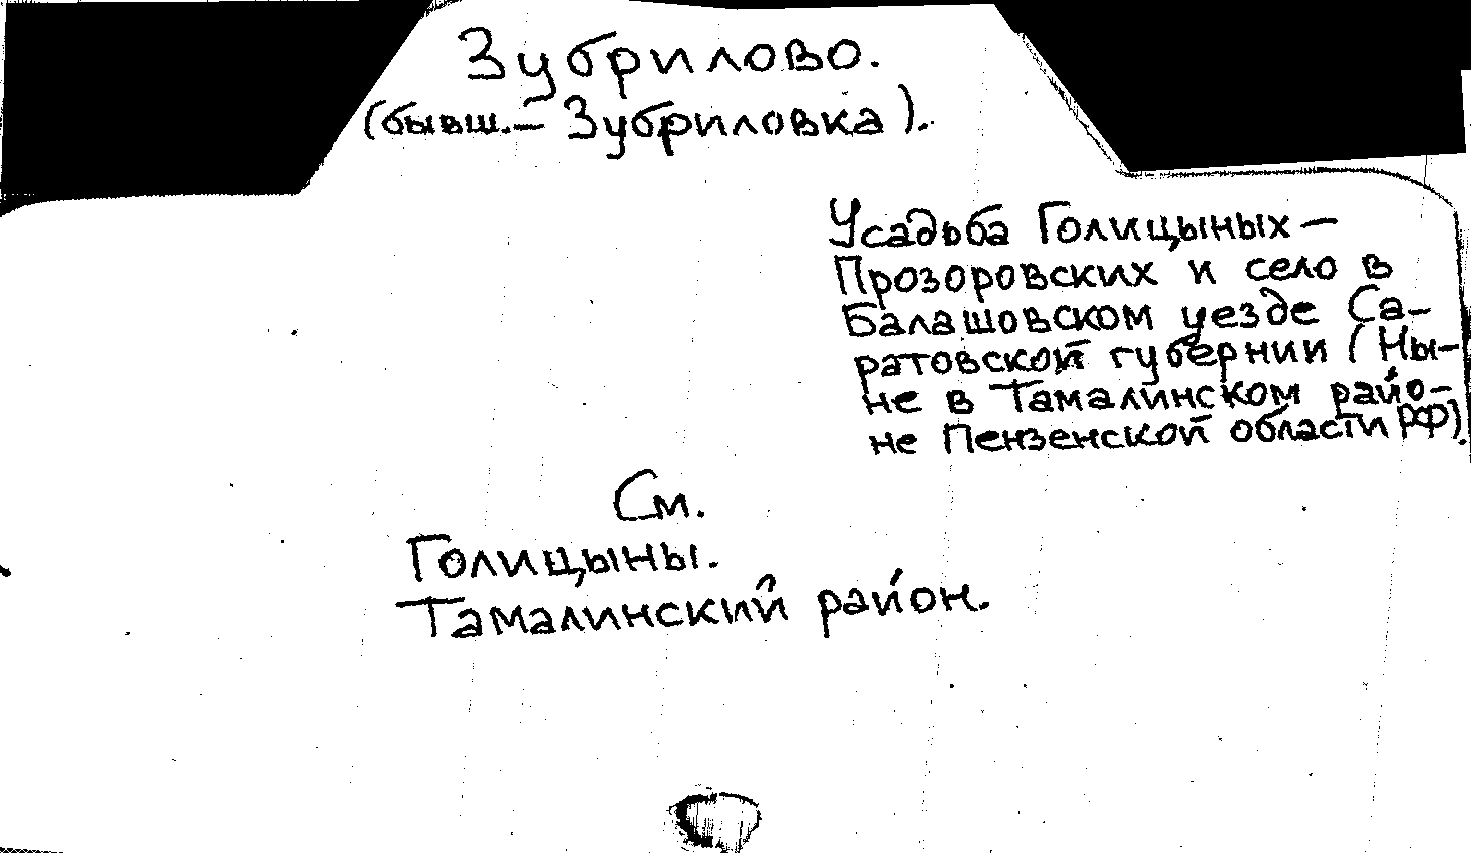 Зубрилово.
(бывш.– Зубриловка).
Усадьба Голицыных –
Прозоровских и село в
Балашовском уезде Са-
ратовской губернии (Ны-
не в Тамалинском райо-
не Пензенской области РФ).
См.
Голицыны.
Тамалинский район.